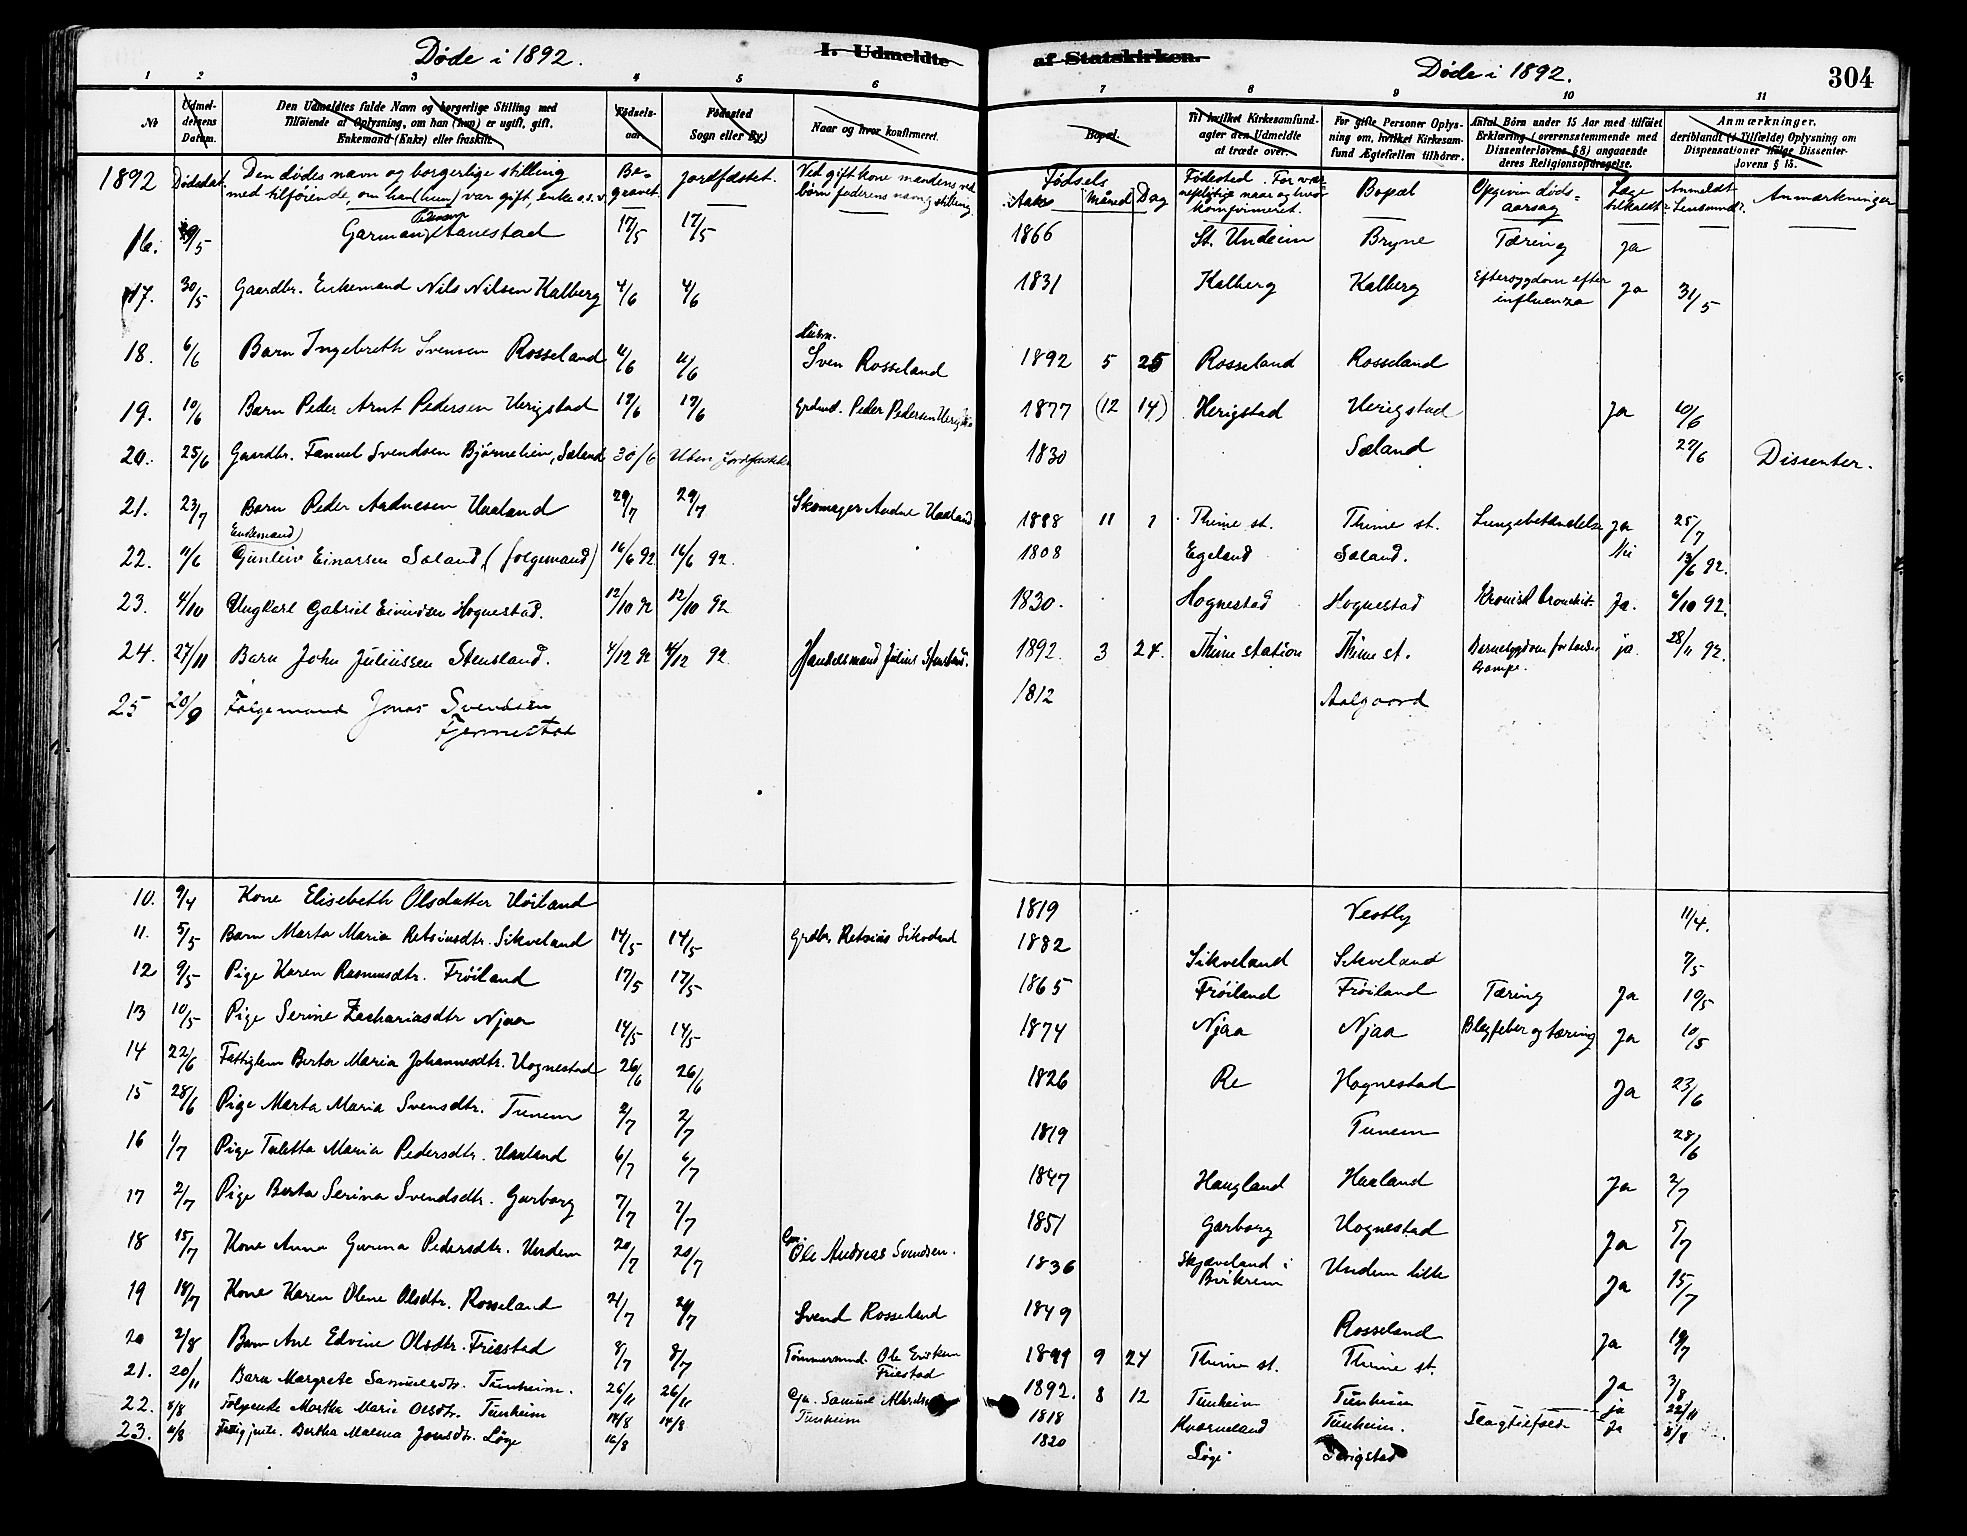 Døde i 1892.
I. Udmeldte
af Statskirken.
Døde i 1892.
304
1 2 3 4 5 6 7 8 9 10 11
No
Udmel-
delsens
Datum.
Den Udmeldtes fulde Navn og borgerlige Stilling med
Tilföiende af Oplysning, om han (hun) er ugift, gift,
Enkemand (Enke) eller fraskilt.
Födsels-
aar
Födested
Sogn eller By)
Naar og hvor konfirmeret.
Bopæl.
Til hvilket Kirkesamfund-
agter den Udmeldte
at træde over.
For gifte Personer Oplys-
ning om, hvilket Kirkesam-
fund Ægtefællen tilhörer.
Antal Börn under 15 Aar med tilföiet
Erklæring (overensstemmende med
Dissenterlovens § 8) angaaende
deres Religionsopdragelse.
Anmærkninger,
deriblandt (i Tilfælde) Oplysning om
Dispensationer ifölge Dissenter-
lovens § 15.
1892 Dödsdat. Den dödes navn og borgerlige stilling
med tilföiende, om han (hun) var gift, enke o.s.v. Be-
gravet. Jordfæstet. Ved gift kone mandens, ved
börn faderens navn og stilling.
Fødsels
Aar Måned Dag Födested. For vær-
nepligtige naar og hvor
konfirmeret. Bopæl Opgiven døds-
aarsag Læge
tilkaldt? Anmeldt
Lensmand? Anmærkninger
16. /5 Garman Hanestad 17/5 17/5 1866 St. Undeim Bryne Tæring Ja
17. 30/5 Gaardbr. Enkemand Nils Nilsen Kalberg 4/6 4/6 1831 Kalberg Kalberg Eftersygdom efter
influenza Ja 31/5
18. 6/6 Barn Ingebreth Svensen Rosseland /6 /6 Sven Rosseland 1892 5 25 Rosseland Rosseland
19. 10/6 Barn Peder Arnt Pedersen Herigstad 17/6 17/6 Grdmd. Peder Pedersen 1877 (12 14) Herigstad Herigstad Ja 10/6
20. 25/6 Gaardbr. Svendsen Bjørnelien, Sæland 30/6 Uden 1830 Sæland 27/6 Dissenter.
21. 23/7 Barn Peder Aadnesen Haaland 29/7 29/7 Skomager Aadne Haaland 1888 11 1 Thime st. Thime st. Lungebetændelse Ja 25/7
Enkemand)
22. /6 Gunleiv Einarsen Sæland (folgemand) 16/6 92. 16/6 92. 1808 Egeland Sæland. Nei 13/6 92.
23. 4/10 Ungkarl Gabriel Hognestad. 12/10 92 12/10 92 1830. Hognestad Hognestad Kronisk bronchit. Ja. 6/10 92.
24. 27/11 Barn John Juliussen Stensland. 4/12 92 4/12 92. Handelsmand Julius 1892. 3 24. Thime station Thime st. ja 28/11 92.
25 20/9 Følgemand Jonas Svendsen
Fjermestad 1812 Aalgaard
10. 9/4 Kone Elisebeth Olsdatter Høiland 1819 Vestly 11/4.
11. 5/5 Barn Marta Maria Sikveland 14/5 14/5 Grdbr. 1882 Sikveland Sikveland 7/5
12 9/5 Pige Karen Rasmusdtr. Frøiland 17/5 17/5 1865 Frøiland Frøiland Tæring Ja 10/5
13 10/5 Pige Serine Zachariasdtr Njaa 14/5 14/5 1874 Njaa Njaa Blegfeber og tæring Ja 10/5
14 22/6 Fattiglem Berta Maria Johannesdtr. Hognestad 26/6 26/6 1826 Re Hognestad Ja 23/6
15 28/6 Pige Marta Maria Svensdtr. Tunem 2/7 2/7 1819 Tunem 28/6
16 1/7 Pige Taletta Maria Pedersdtr. Haaland 6/7 6/7 1847 Haugland Haaland Ja 2/7
17 2/7 Pige Berta Serina Svendsdtr. Garborg 7/7 7/7 1851 Garborg Hognestad Ja 5/7
18 15/7 Kone Anna Gurina Pedersdtr. Undem 20/7 20/7 Ole Andreas Svendsen. 1836 Skjæveland i
Birkrem Undem lille Ja 15/7
19 18/7 Kone Karen Olene Olsdtr. Rosseland 21/7 21/7 Svend Rosseland 1849 Rosseland Ja 19/7
20 2/8 Barn Ane Edvine Olsdtr. Friestad 8/7 8/7 Tømmermd. Ole Eriksen
Friestad 1891 9 24 Thime st. Thime st. Ja 3/8
21. 20/11 Barn Margrete Samuelsdtr. Tunheim. 26/11 26/11 Samuel
Tunheim 1892. 8 12 Tunheim Tunheim ja 22/11
22. 8/8 Martha Marie Olsdtr. Tunheim 14/8 14/8 1818 Kværneland Tunheim. Slagtilfælde Ja 8/8
23. /8 Bertha Malena Jonsdtr. Løge 16/8 1820 Løge